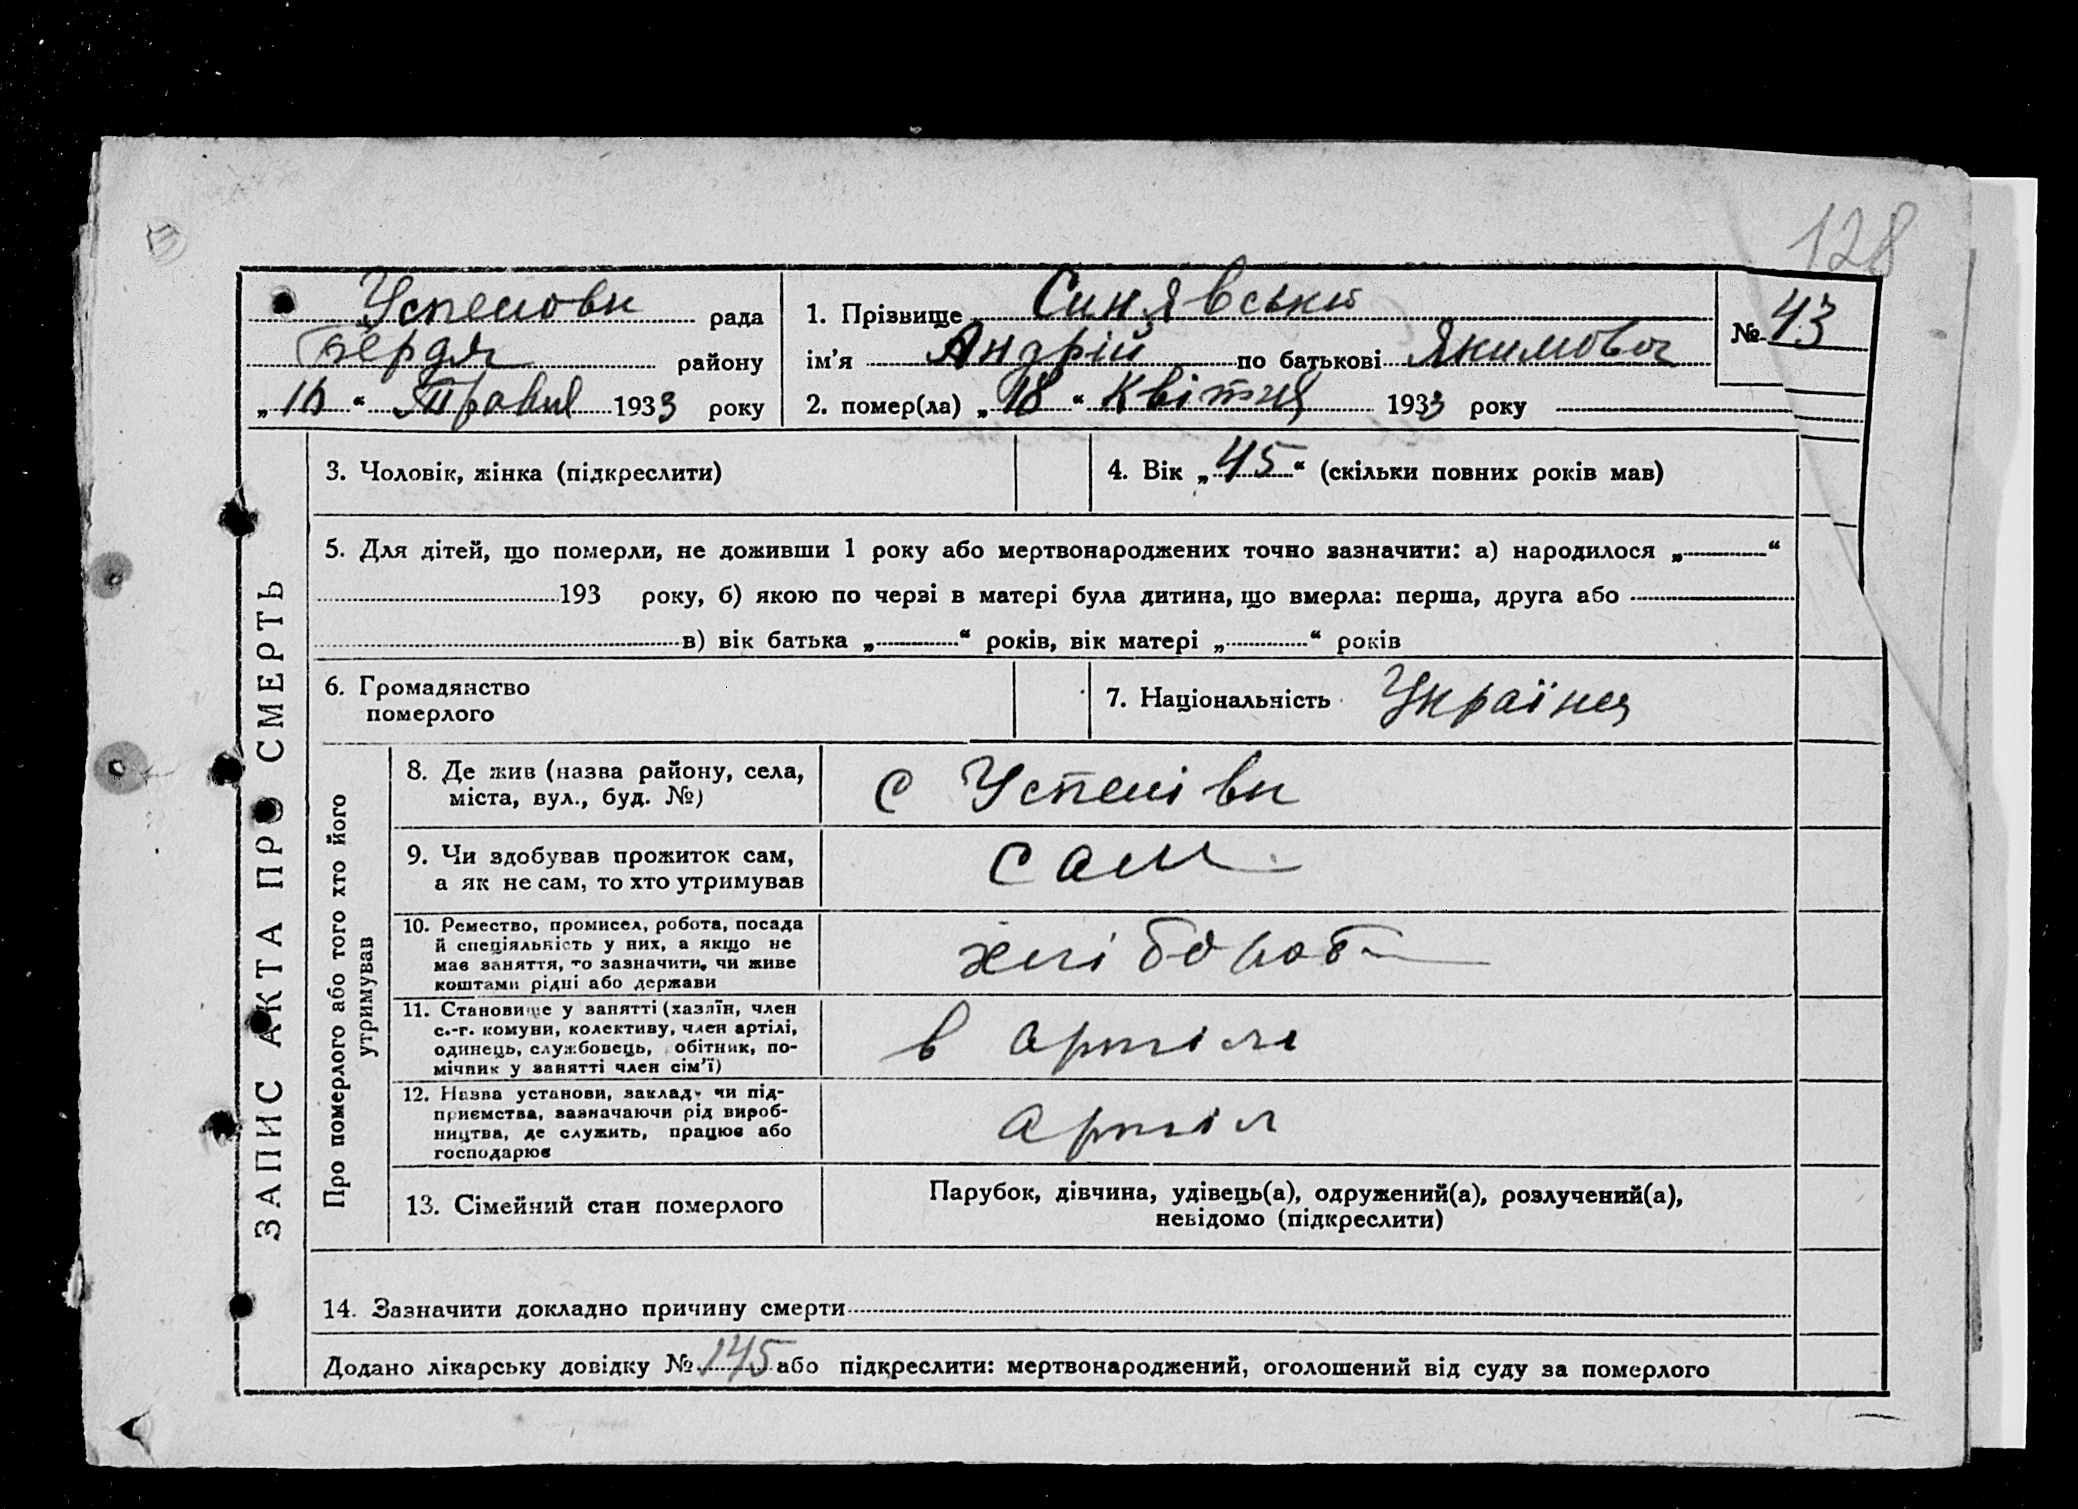 128
Успенови рада
Бердя району
„ 10 “ Травня 1933 року
1. Прізвище Синявськи
ім'я Андрій по батькові Якимович
2. помер(ла) „ 18 “ Квітня 1933 року
№ 43
ЗАПИС АКТА ПРО СМЕРТЬ
3. Чоловік, жінка (підкреслити)
4. Вік „ 45 “ (скільки повних років мав)
5. Для дітей, що померли, не доживши 1 року або мертвонароджених точно зазначити: а) народилося „ “
193 року, б) якою по черзі в матері була дитина, що вмерла: перша, друга або
в) вік батька „ “ років, вік матері „ “ років
6. Громадянство
померлого
7. Національність Українец
Про померлого або того хто його
утримував
8. Де жив (назва району, села,
міста, вул., буд. №)
с Успенівки
9. Чи здобував прожиток сам,
а як не сам, то хто утримував
сам
10. Ремество, промисел, робота, посада
й спеціяльність у них, а якщо не
має заняття, то зазначити, чи живе
коштами рідні або держави
хлібороб
11. Становище у занятті (хазяїн, член
с.-г. комуни, колективу, член артілі,
одинець, службовець, обітник, по-
мічник у занятті член сім'ї)
в артілі
12. Назва установи, закладу чи під-
приємства, зазначаючи рід вироб-
ництва, де служить, працює або
господарює
артіл
13. Сімейний стан померлого
Парубок, дівчина, удівець(а), одружений(а), розлучений(а),
невідомо (підкреслити)
14. Зазначити докладно причину смерти
Додано лікарську довідку № 145 або підкреслити: мертвонароджений, оголошений від суду за померлого